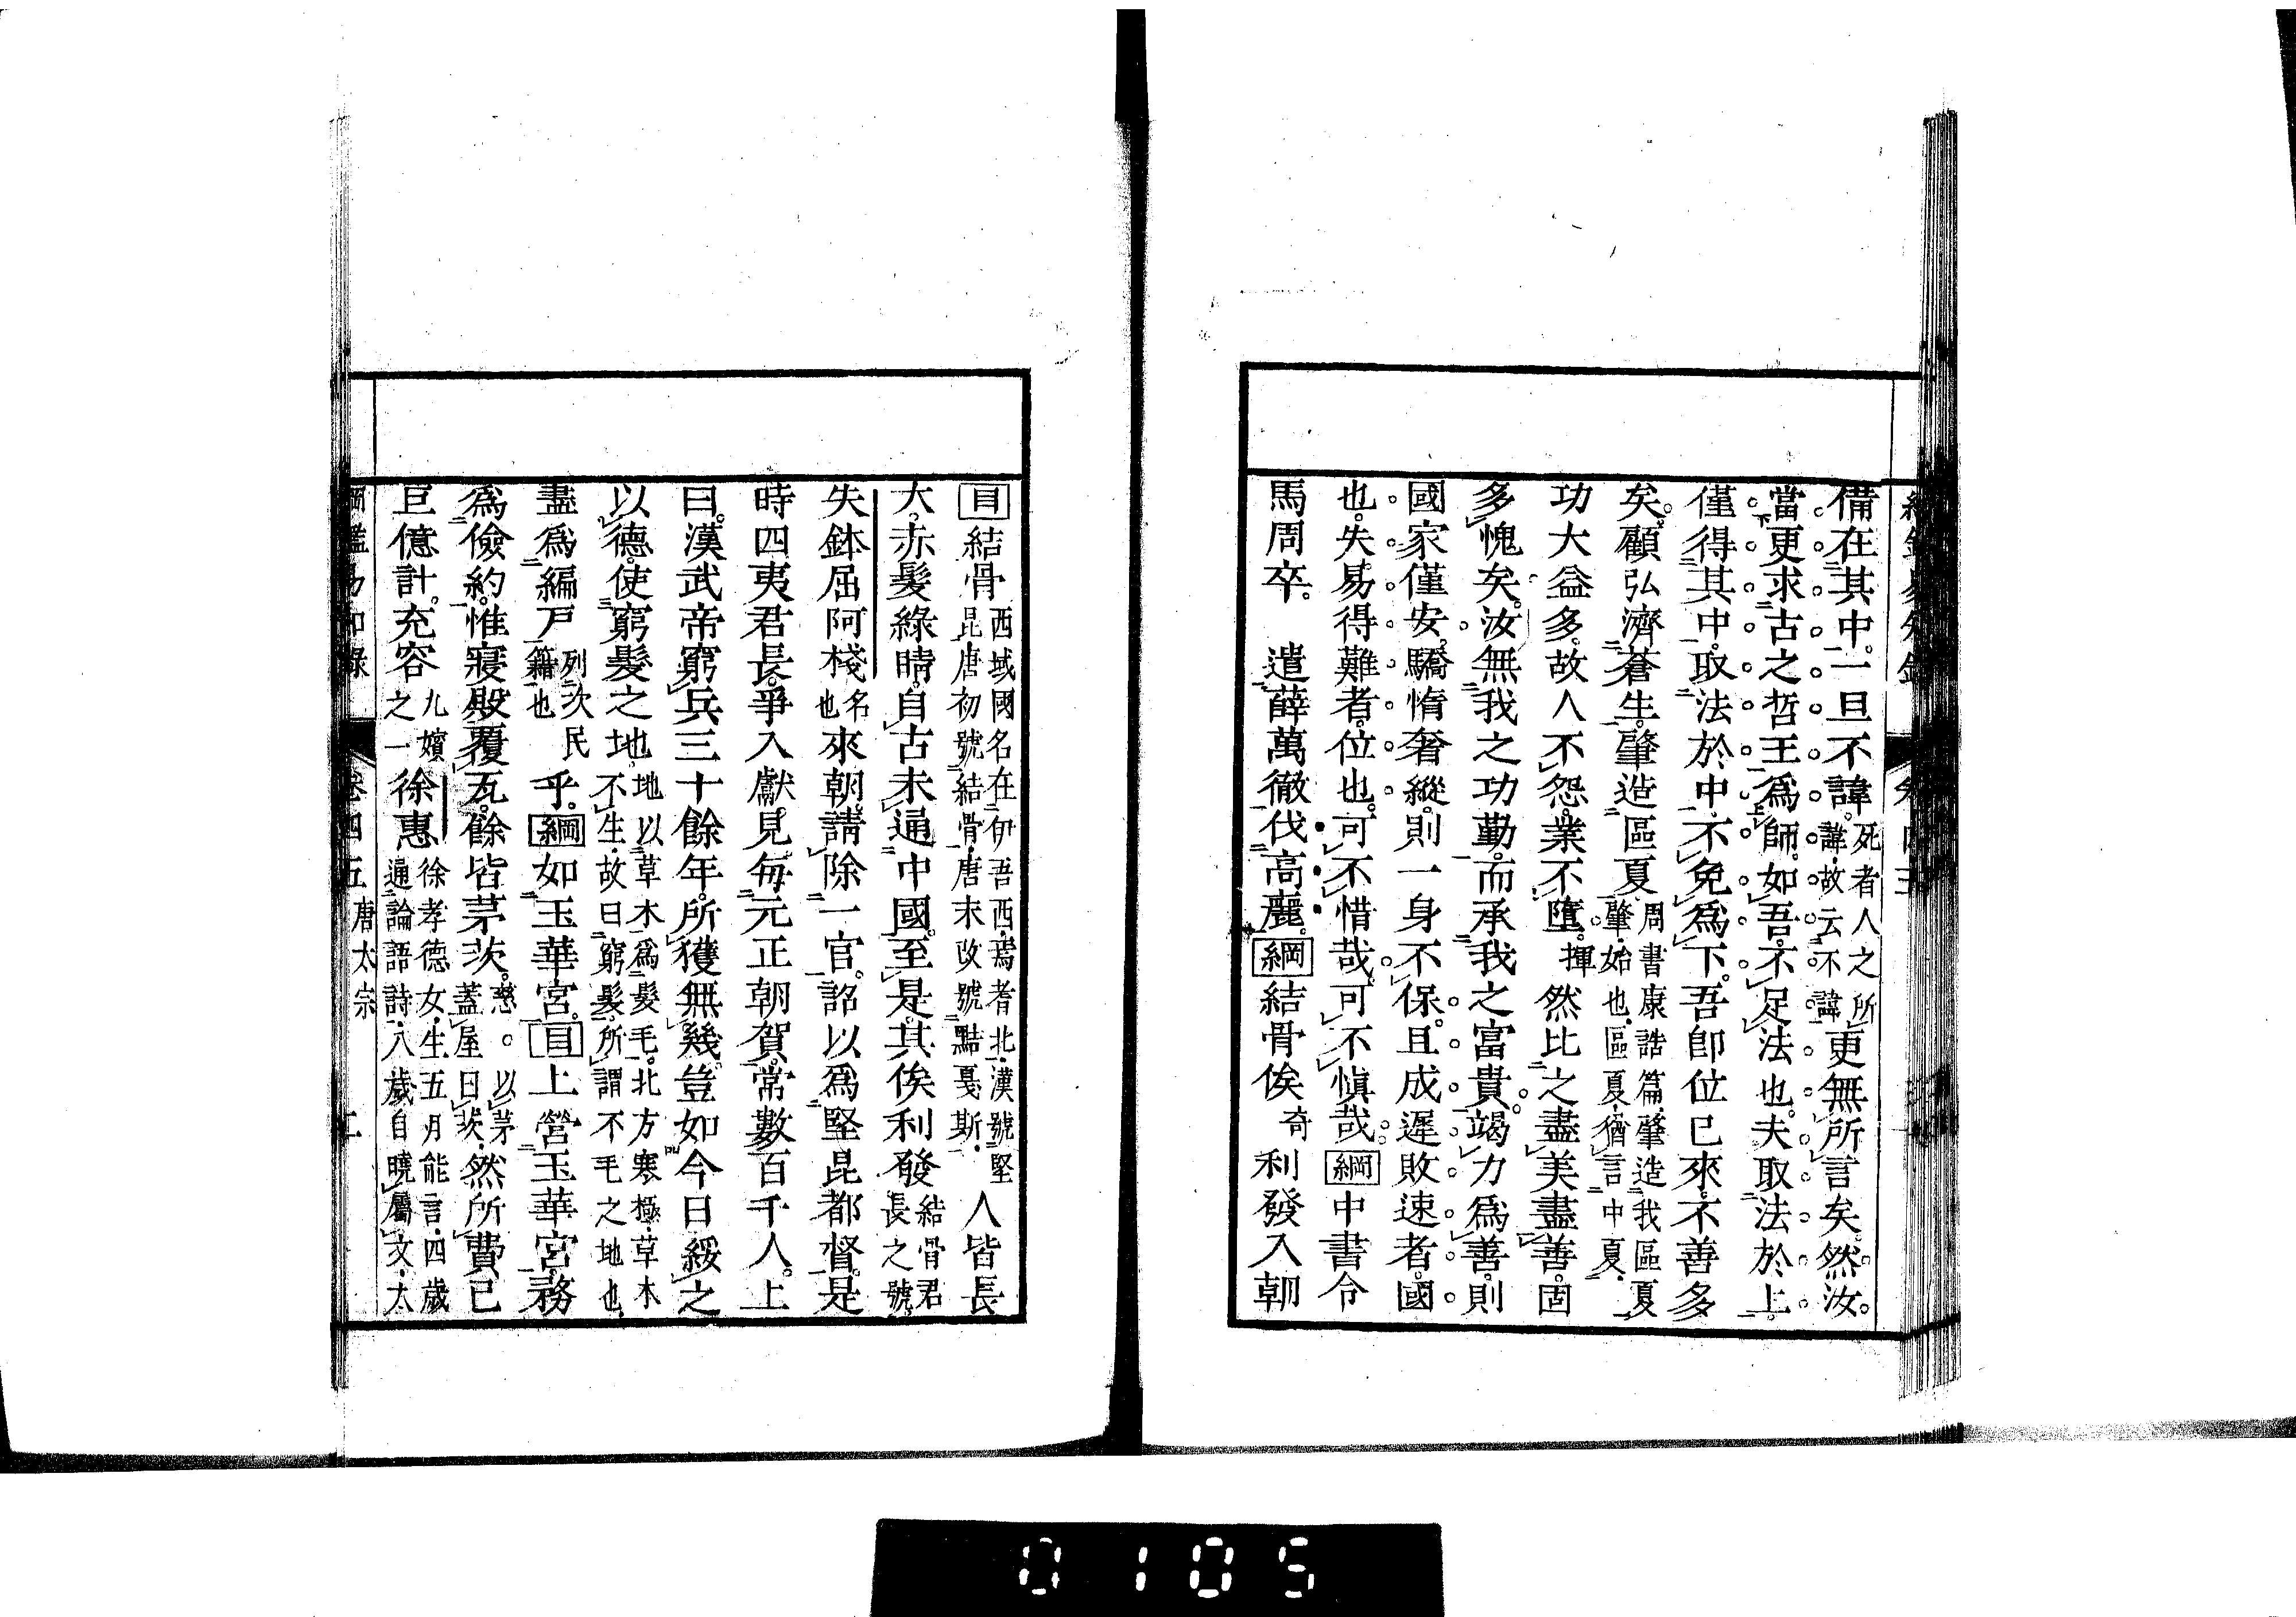 備在其中。一旦不諱。死者人之所諱。故云不諱更無所言矣。然汝
當更求古之哲王爲師。如吾不足法也。夫取法於上。
僅得其中。取法於中。不免爲下。吾卽位已來。不善多
矣。顧弘濟蒼生。肇造區夏。周書康誥篇。肇造我區夏肇。始也。區夏。猶言中夏。
功大益多。故人不怨。業不墮。揮然比之盡美盡善。固
多愧矣。汝無我之功勤。而承我之富貴。竭力爲善。則
國家僅安。驕惰奢縱。則一身不保。且成遲敗速者。國
也。失易得難者。位也。可不惜哉。可不愼哉。綱中書令
馬周卒。 遣薛萬徹伐高麗。綱結骨俟奇利發入朝
目結骨西域國名在伊吾西。焉耆北。漢號堅昆。唐初號結骨。唐末改號黠戛斯。人皆長
大。赤髮綠睛。自古未通中國。至是。其俟利發結骨君長之號。
失鉢屈阿棧名也來朝。請除一官。詔以爲堅昆都督。是
時四夷君長。爭入獻見。每元正朝賀。常數百千人。上
曰。漢武帝窮兵三十餘年。所獲無幾。豈如今日綏之
以德。使窮髮之地也地以草木爲髮毛。北方寒極。草木不生。故曰窮髮。所謂不毛之地也。
盡爲編戸列次民籍也乎。綱如玉華宮。目上營玉華宮。務
爲儉約。惟寢殿覆瓦。餘皆茅茨。慈。以茅蓋屋曰茨。然所費已
巨億計。充容九嬪之一徐惠徐孝德女。生五月能言。四歲通論語詩。八歲自曉屬文。太
卷四五 唐太宗